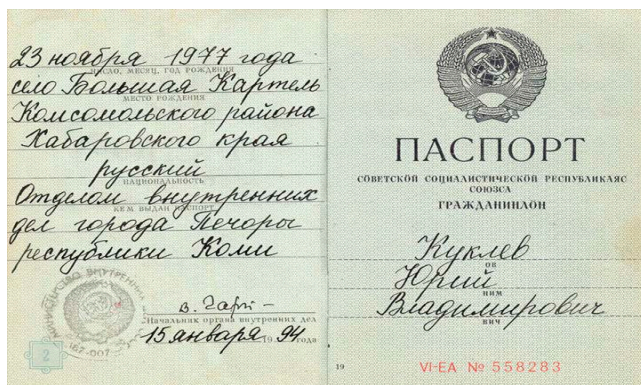 23 ноября 1977 года
ЧИСЛО, МЕСЯЦ, ГОД РОЖДЕНИЯ
село Большая Картель
МЕСТО РОЖДЕНИЯ
Комсомольского района
Хабаровского края
русский
НАЦИОНАЛЬНОСТЬ
Отделом внутренних
КЕМ ВЫДАН ПАСПОРТ
дел города Печоры
республики Коми
Начальник органа внутренних дел
15 января 1994 года
2
ПАСПОРТ
СОВЕТСКОЙ СОЦИАЛИСТИЧЕСКОЙ РЕСПУБЛИКАЯС
СОЮЗСА
ГРАЖДАНИНАОН
Куклев
ОВ
Юрий
НИМ
Владимирович
ВИЧ
19
VI-ЕА № 558283